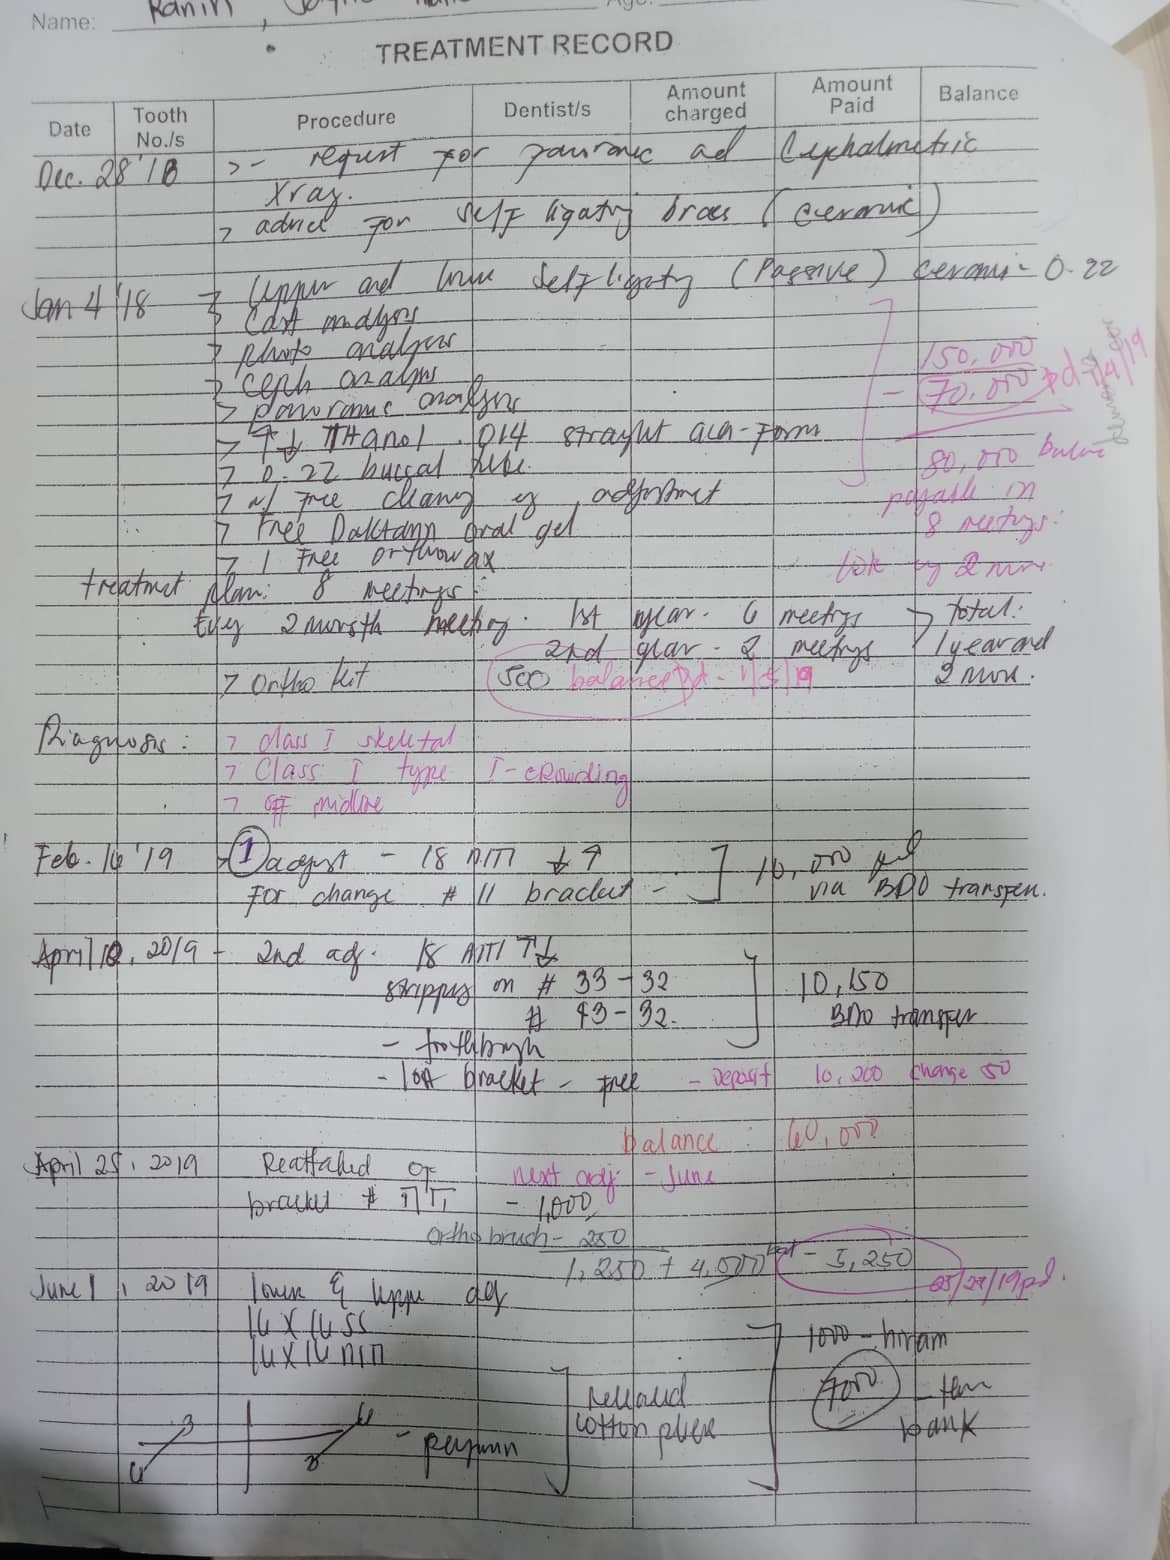 Name: Ranin,
TREATMENT RECORD
Date Tooth No./s Procedure Dentist/s Amount charged Amount Paid Balance
Dec. 28 '18 > - request for ad Cephalmetric
Xray.
> advice for Self ligatng braces (ceramic)
Jan 4 '18 > Upper and lower Self ligaty (Passive) cerami - 0.22
> Cast analysis
> photo analysis
150,000
> Ceph analysis
- 70,000 pd - 1/4/19
> panoramic analysis
> ↑↓ .014 straight arch-form
> 0.22 buccal tube
80,000 balance
> w/ free cleaning adjustment
payable in
8 meetings.
> Free oral gel
> 1 Free orthowax
treatment plan: 8 meetings:
Evry 2 month meeting. 1st year - 6 meetings > total:
2nd year - 2 meetings 1 year and
> Ortho kit 500 balance pd - 1/5/19 2 more.
Diagnosis: > class I skeletal
> Class I type I - crowding
> off midline
Feb. 16 '19 > 1 adjust - 18 NITI ↓↑ 10,000
For change # 11 bracket - via BDO transfer.
April 12, 2019 - 2nd adj. 18 NITI ↑↓
stripping on # 33-32 10,150
# 43-32. BDO transfer
- toothbrush
- lost bracket - free - Deposit 10,200 change 50
balance: 60,000
April 25, 2019 Reattached of next adj - June
bracket # - 1,000
ortho brush - 250
1,250 + 4,000 - 5,250
05/27/19 pd.
June 1, 2019 lower & upper adj
16 x 16 SS 1000 - hiram
16 x 16 NITI
4000 - bank